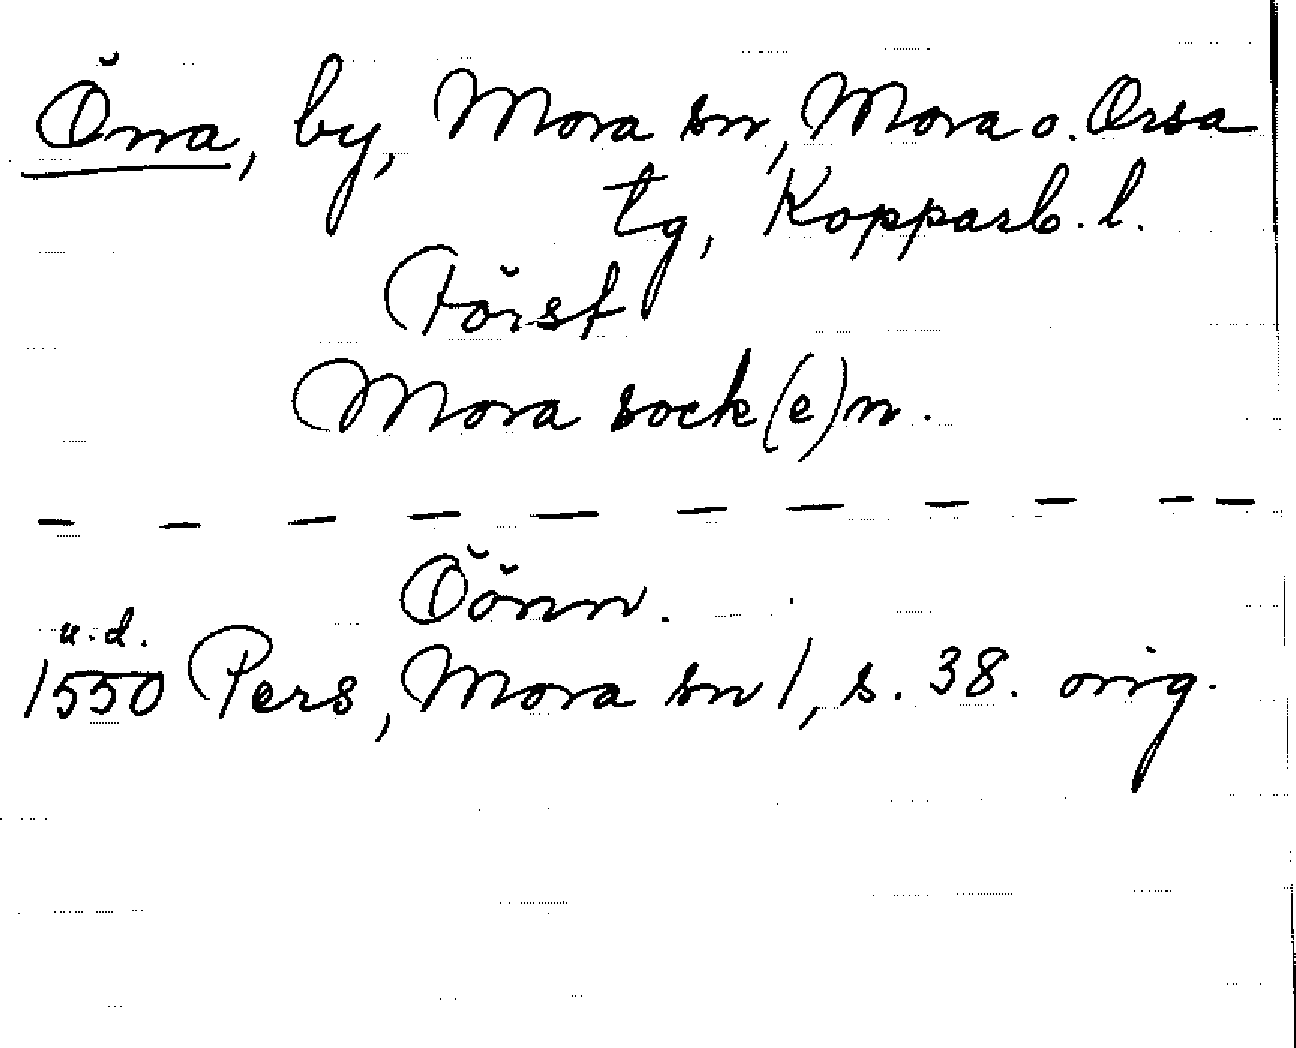 Öna, by, Mora sn, Mora o. Orsa
tg, Kopparb. l.
Först
Mora sock(e)n.
— — — — — — — — — — —
Öönn.
u.d.
1550 Pers, Mora sn 1, s. 38. orig.